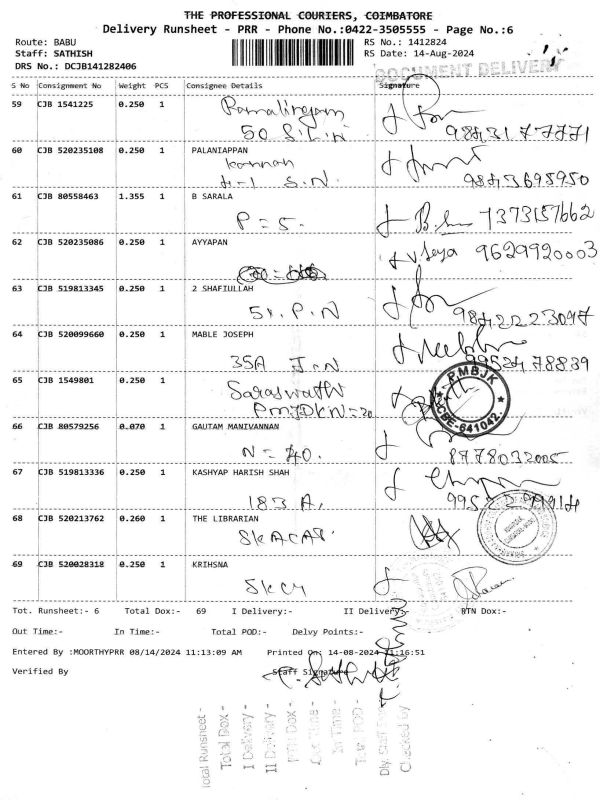 THE PROFESSIONAL COURIERS, COIMBATORE
Delivery Runsheet - PRR - Phone No.:0422-3505555 - Page No.:6
Route: BABU RS No.: 1412824
Staff: SATHISH RS Date: 14-Aug-2024
DRS No.: DCJB141282406
DOCUMENT DELIVERY
S No Consignment No Weight PCS Consignee Details Signature
59 CJB 1541225 0.250 1 Ramalingam
50 S.L.N 9843177771
60 CJB 520235108 0.250 1 PALANIAPPAN
Kannan
4-1 S.N. 9843695950
61 CJB 80558463 1.355 1 B SARALA
P = 5. 7373157662
62 CJB 520235086 0.250 1 AYYAPAN
9629920003
63 CJB 519813345 0.250 1 2 SHAFIULLAH
51. P. N 9842223097
64 CJB 520099660 0.250 1 MABLE JOSEPH
35A J-N 9952478839
65 CJB 1549801 0.250 1 Saraswathi
PMJDKN=20
PMBJK
CBE-641042.
66 CJB 80579256 0.070 1 GAUTAM MANIVANNAN
N = 40. 8778032005
67 CJB 519813336 0.250 1 KASHYAP HARISH SHAH
183 A,
68 CJB 520213762 0.260 1 THE LIBRARIAN
SKACAS
69 CJB 520028318 0.250 1 KRIHSNA
Skcy
Tot. Runsheet:- 6 Total Dox:- 69 I Delivery:- II Delivery:- RTN Dox:-
Out Time:- In Time:- Total POD:- Delvy Points:-
Entered By :MOORTHYPRR 08/14/2024 11:13:09 AM Printed On: 14-08-2024 11:16:51
Verified By Staff Signature
Total Runsheet -
Total Dox -
I Delivery -
II Delivery -
RTN Dox -
Out Time -
In Time -
Total POD -
Dly. Staff
Checked by